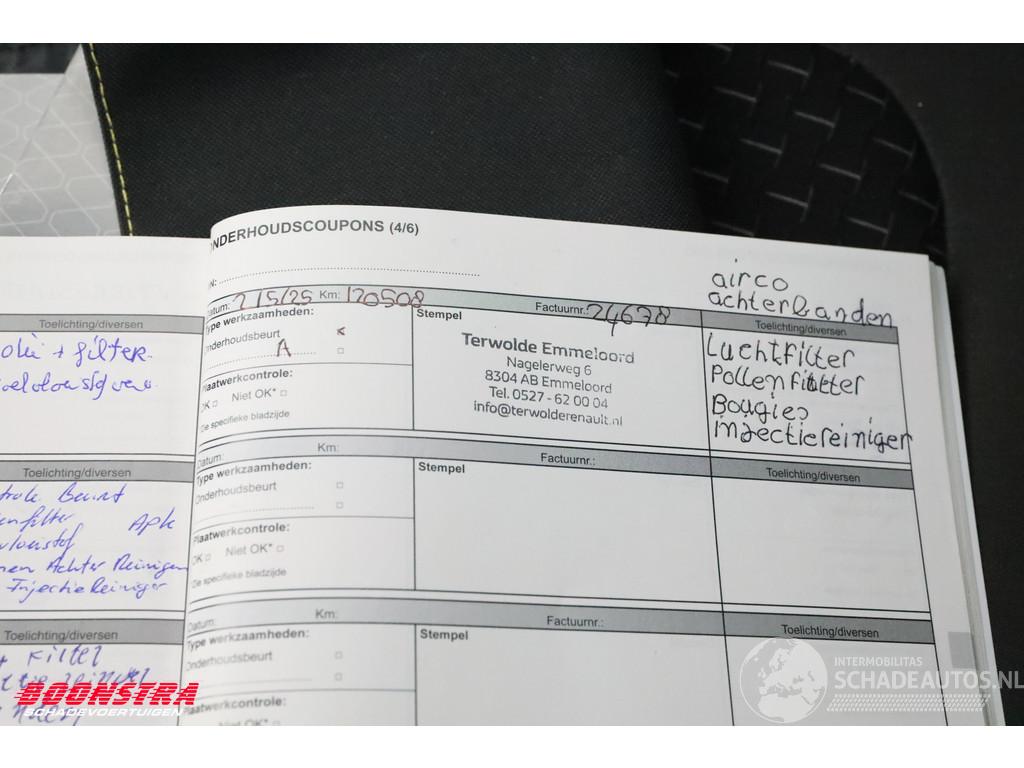 ONDERHOUDSCOUPONS (4/6)
airco
achterbanden
Datum: 2/5/25 Km: 120508 Factuurnr.: 24678
Type werkzaamheden:
Onderhoudsbeurt
A
Plaatwerkcontrole:
OK □ Niet OK* □
Zie specifieke bladzijde
Stempel
Terwolde Emmeloord
Nagelerweg 6
8304 AB Emmeloord
Tel. 0527 - 62 00 04
info@terwolderenault.nl
Toelichting/diversen
Luchtfilter
Pollenfilter
Bougies
injectiereiniger
Datum: Km: Factuurnr.:
Type werkzaamheden:
Onderhoudsbeurt
Plaatwerkcontrole:
OK □ Niet OK* □
Zie specifieke bladzijde
Stempel
Toelichting/diversen
Datum: Km: Factuurnr.:
Type werkzaamheden:
Onderhoudsbeurt
Plaatwerkcontrole:
OK □ Niet OK* □
Stempel
Toelichting/diversen
Toelichting/diversen
olie + filter
Toelichting/diversen
Beurt
Apk
Achter Reinigen
Injectie Reiniger
Toelichting/diversen
+ Filter
BOONSTRA
SCHADEVOERTUIGEN
INTERMOBILITAS
SCHADEAUTOS.NL